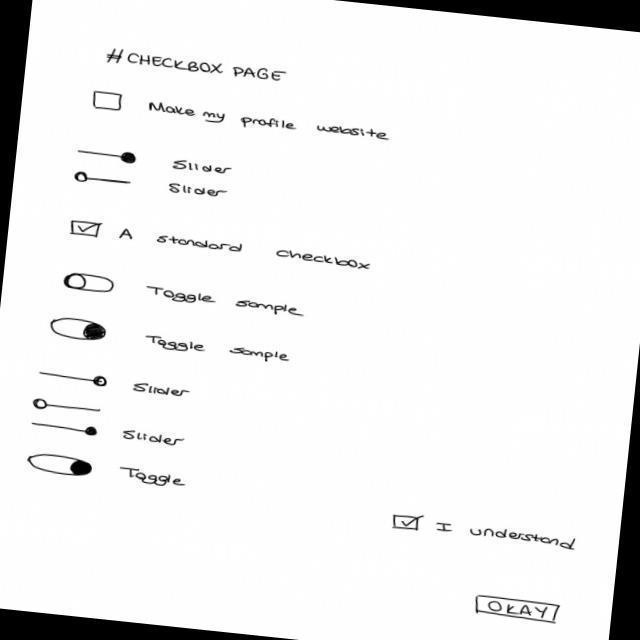 #CHECKBOX PAGE
Make my profile website
Slider
Slider
A standard checkbox
Toggle sample
Toggle sample
Slider
Slider
Toggle
I understand
OKAY